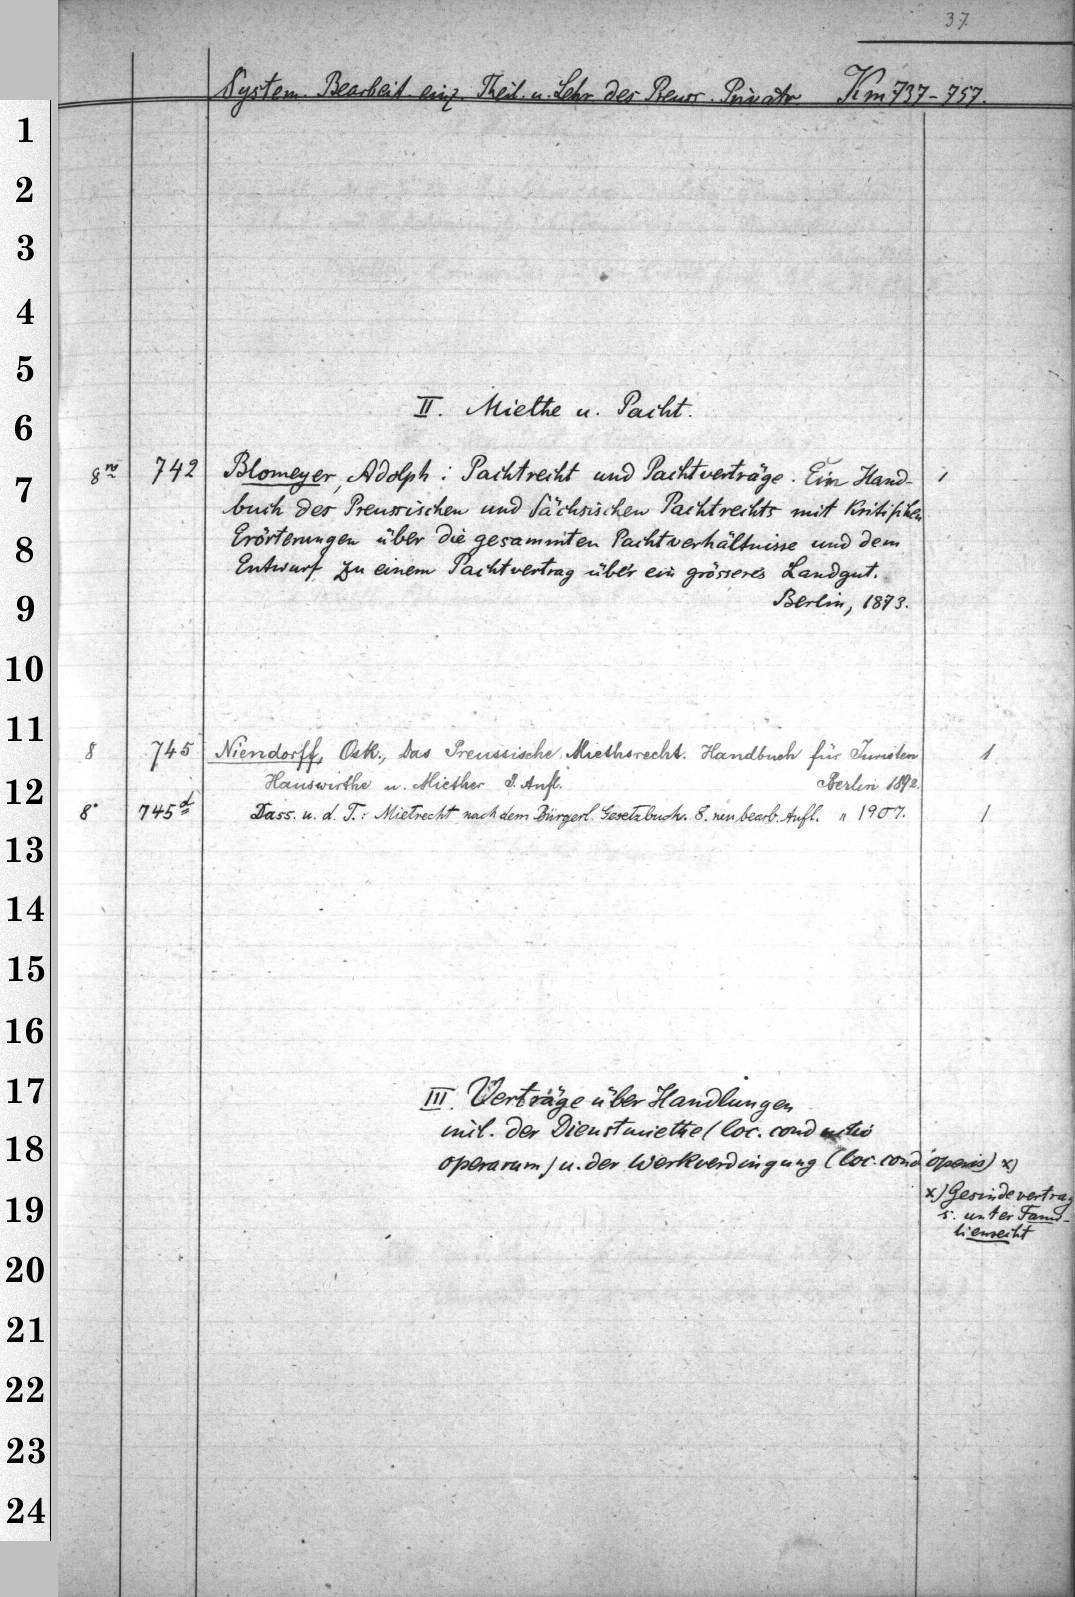 37.
System. Bearbeit. einz. Theil. u. Lehr. des Preuss. Privatr. Km 737-757.
1
2
3
4
5
II. Miethe u. Pacht.
6
8vo 742 Blomeyer, Adolph: Pachtrecht und Pachtverträge. Ein Hand- 1
7
buch des Preussischen und Sächsischen Pachtrechts mit kritischen
Erörterungen über die gesammten Pachtverhältnisse und dem
8
Entwurf zu einem Pachtvertrag über ein grösseres Landgut.
Berlin, 1873.
9
10
11
8 745 Niendorff, Osk., Das Preussische Miethsrecht. Handbuch für Juristen 1
Hauswirthe u. Miether Aufl. Berlin 1892.
12
8° 745d Dass. u. d. T.: Mietrecht nach dem Bürgerl. Gesetzbuch. 8. neu bearb. Aufl. " 1907. 1
13
14
15
16
17
III. Verträge über Handlungen
incl. der Dienstmiethe (loc. conductio
18
operarum) u. der Werkverdingung (loc. cond. operis) x)
x) Gesindevertrag
19
s. unter Fami-
lienrecht
20
21
22
23
24